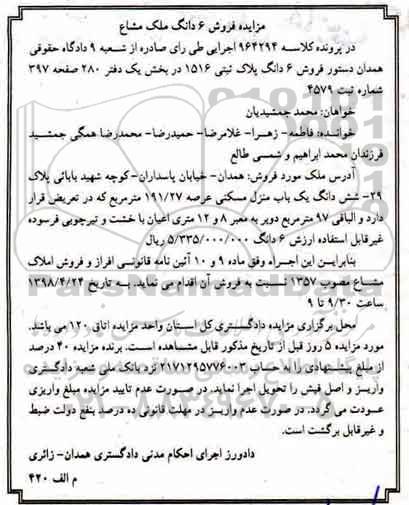 مزایده فروش ۶ دانگ ملک مشاع
در پرونده کلاسه ۹۶۴۲۹۴ اجرایی طی رای صادره از شعبه ۹ دادگاه حقوقی
همدان دستور فروش ۶ دانگ پلاک ثبتی ۱۵۱۶ در بخش یک دفتر ۲۸۰ صفحه ۳۹۷
شماره ثبت ۴۵۷۹
خواهان: محمد جمشیدیان
خوانده: فاطمه- زهرا- غلامرضا- حمیدرضا- محمدرضا همگی جمشید
فرزندان محمد ابراهیم و شمسی طالع
آدرس ملک مورد فروش: همدان- خیابان پاسداران-کوچه شهید بابائی پلاک
۲۹- شش دانگ یک باب منزل مسکنی عرصه ۱۹۱/۲۷ مترمربع که در تعریض قرار
دارد و الباقی ۹۷ مترمربع دوبر به معبر ۸ و ۱۲ متری اعیان با خشت و تیرچوبی فرسوده
غیرقابل استفاده ارزش ۶ دانگ ۵/۳۳۵/۰۰۰/۰۰۰ ریال
بنابراین این اجراء وفق ماده ۹ و ۱۰ آئین نامه قانونی افراز و فروش املاک
مشاع مصوب ۱۳۵۷ نسبت به فروش آن اقدام می نماید. به تاریخ ۱۳۹۸/۴/۲۴
ساعت ۹/۳۰ تا ۹
محل برگزاری مزایده دادگستری کل استان واحد مزایده اتاق ۱۲۰ می باشد.
مورد مزایده ۵ روز قبل از تاریخ مذکور قابل مشاهده است. برنده مزایده ۴۰ درصد
از مبلغ پیشنهادی را به حساب ۲۱۷۱۲۹۵۷۷۶۰۰۳ نزد بانک ملی شعبه دادگستری
واریز و اصل فیش را تحویل اجرا نماید. در صورت عدم تایید مزایده مبلغ واریزی
عودت می گردد. در صورت عدم واریز در مهلت قانونی ده درصد بنفع دولت ضبط
و غیرقابل برگشت است.
دادورز اجرای احکام مدنی دادگستری همدان- زائری
م الف ۴۲۰